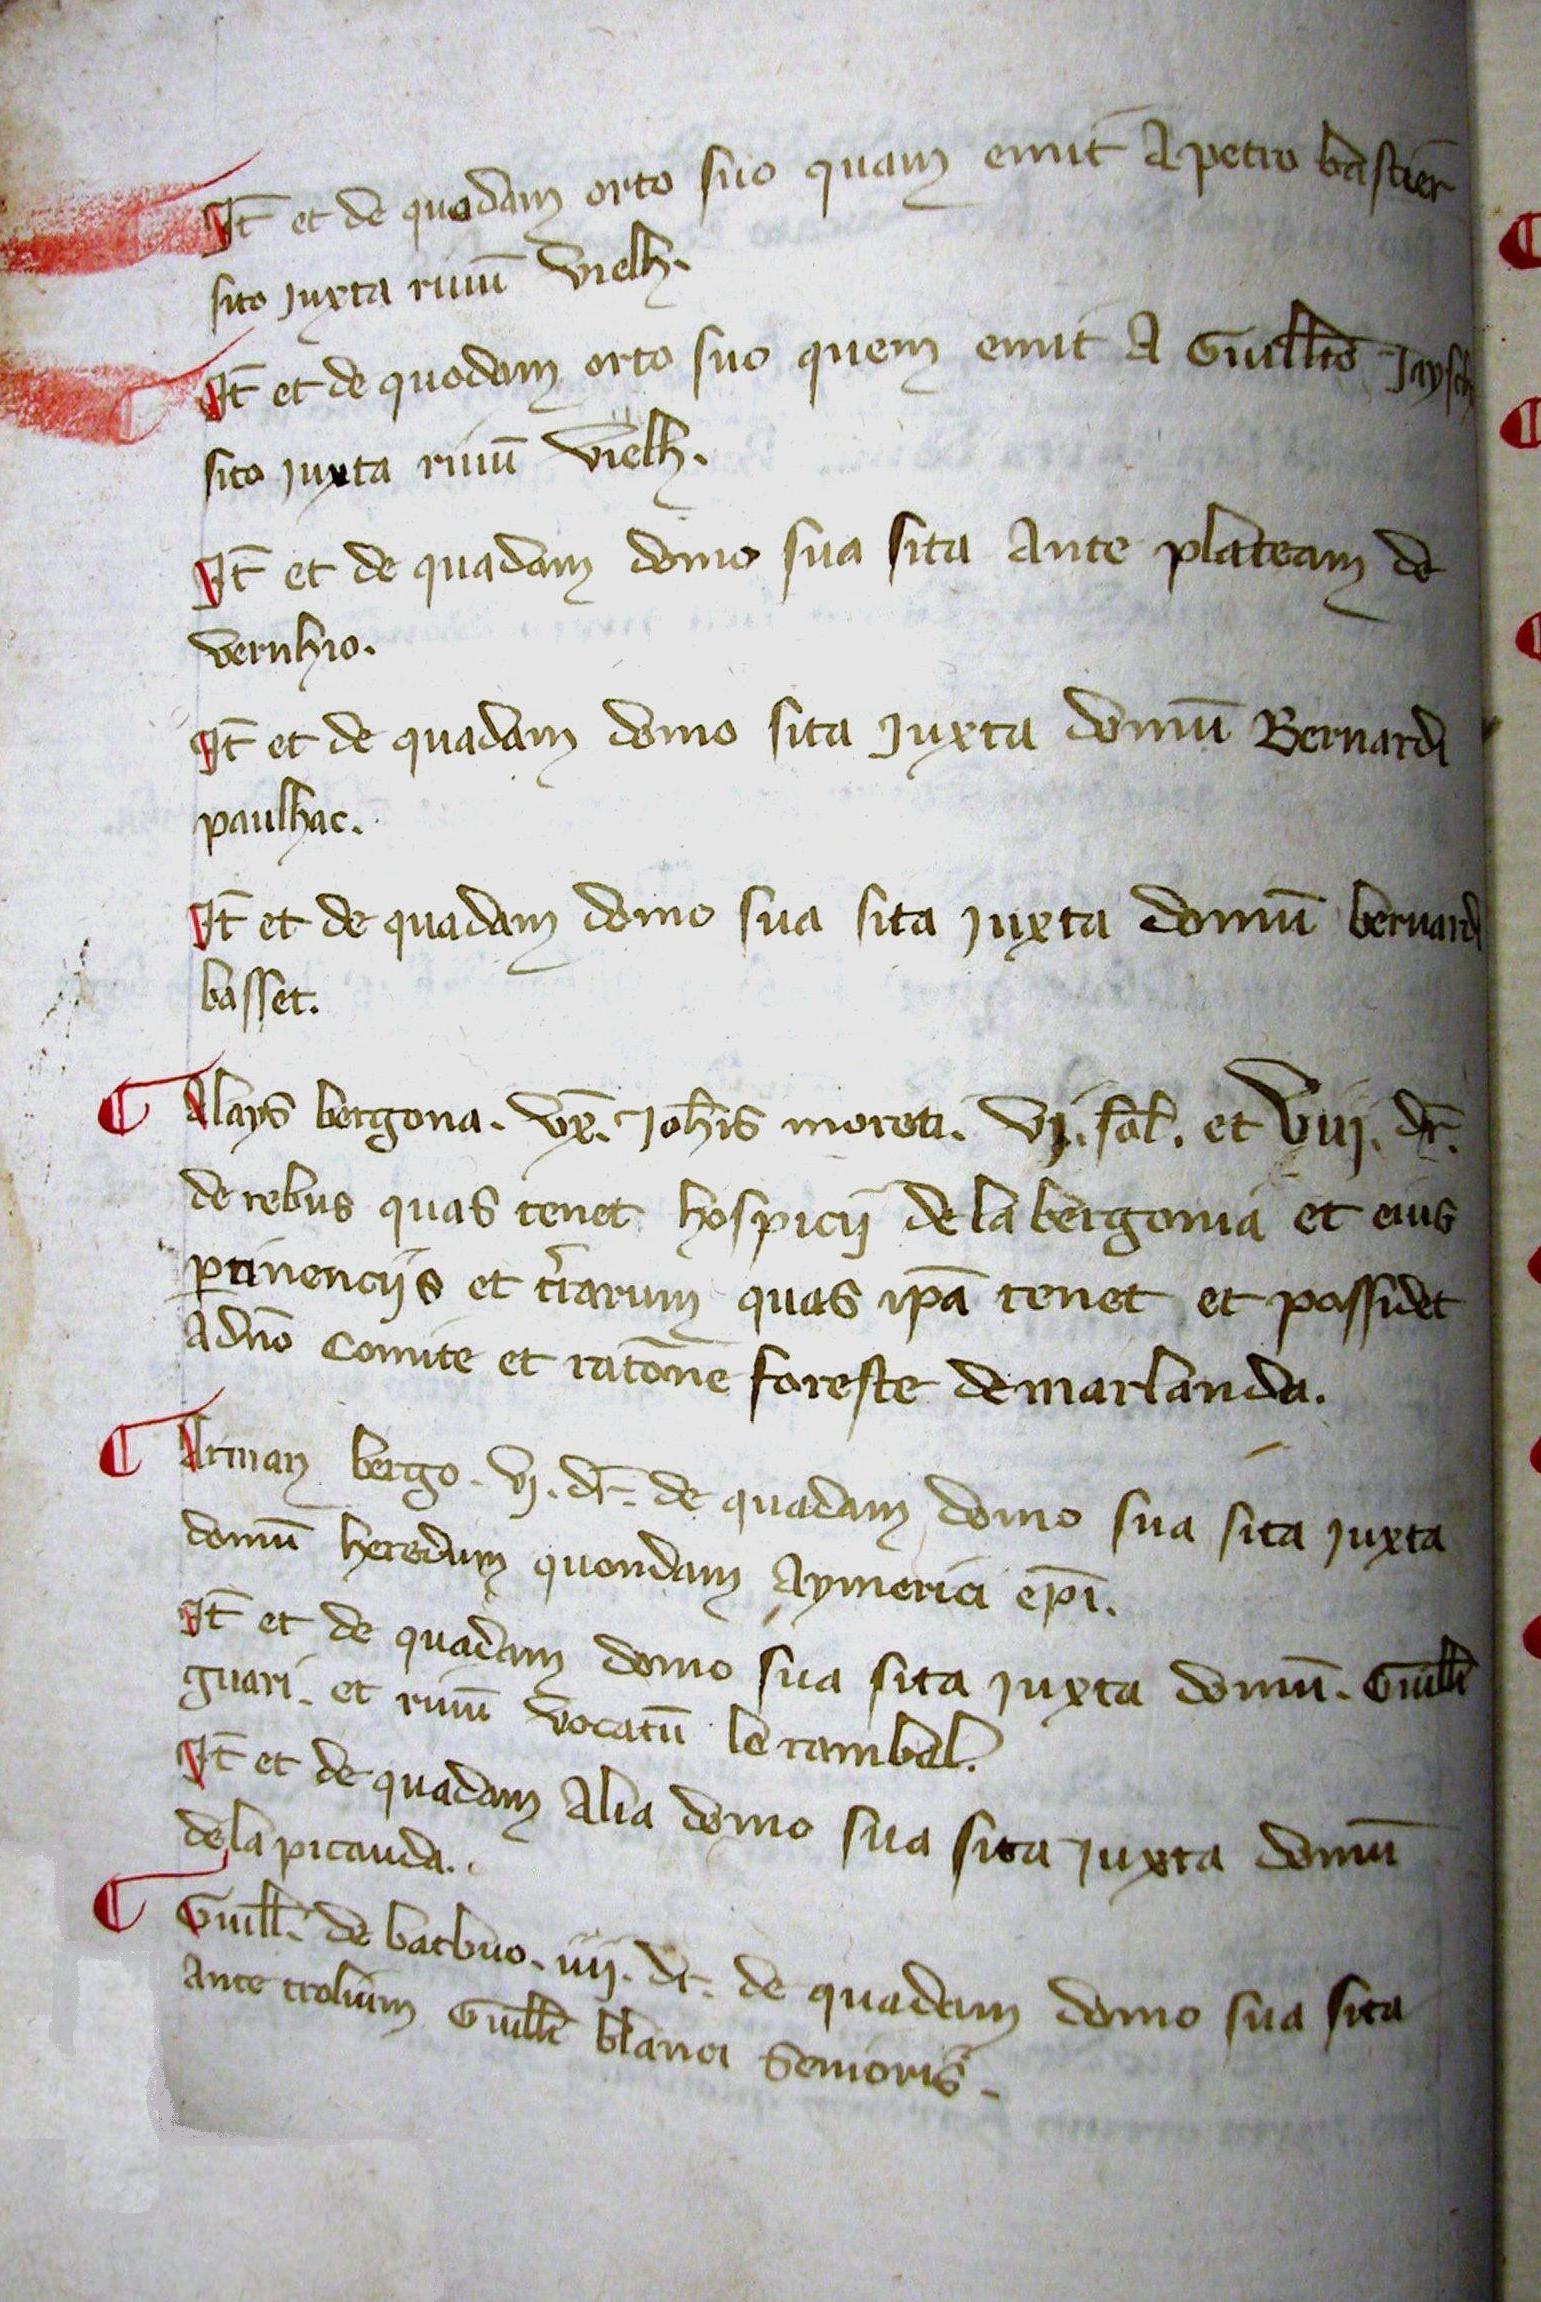 It̄ et de quodam orto suo quam emit A petro bastier
sito juxta riuū vielh.
It̄ et de quodam orto suo quem emit A Guillỉo
sito juxta riuū vielh.
It̄ et de quadam domo sua sita Ante plateam de
vernhio.
It̄ et de quadam domo sita juxta domū Bernardi
paulhac.
It̄ et de quadam domo sua sita juxta domū bernardi
basset.
Alays bergona. vx̄. Joħis moreti. vj. sol̄. et viij. dr̄.
de rebus quas tenet hospicij de la bergonia et eius
ꝑtinencijs et tr̄arum quas ip̄a tenet et possidet
A dn̄o Comite et ratōne foreste de marlanda.
Arman bergo. vj. dr̄. de quadam domo sua sita juxta
domū heredum quondam Aymerici ep̄i.
It̄ et de quadam domo sua sita juxta domū. Guill̄i
guari. et riuū vocatū le rambal.
It̄ et de quadam Alia domo sua sita juxta domū
de la picauda.
Guill̄. de barbuo. iiij. dr̄. de quadam domo sua sita
Ante trolium Guill̄i blanci Senioris.